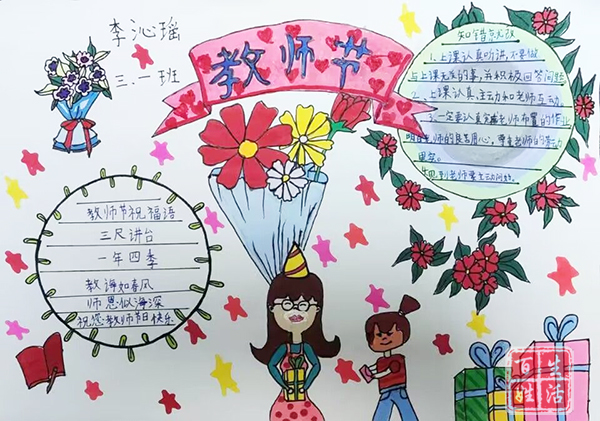 李沁瑶
三.一班
教师节
知错就改
1.上课认真听讲,不要做
与上课无关的事,并积极回答问题
2.上课认真,主动和老师互动。
3.一定要认真完成老师布置的作业
明白老师的良苦用心,尊重老师的劳动
果实。
4.到老师要主动问好。
教师节祝福语
三尺讲台
一年四季
教诲如春风
师恩似海深
祝您教师节日快乐
百姓生活